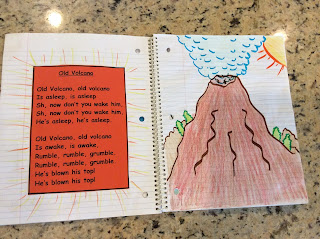 Old Volcano
Old Volcano, old volcano
Is asleep, is asleep.
Sh, now don't you wake him,
Sh, now don't you wake him,
He's asleep, he's asleep.
Old Volcano, old volcano
Is awake, is awake.
Rumble, rumble, grumble.
Rumble, rumble, grumble.
He's blown his top!
He's blown his top!